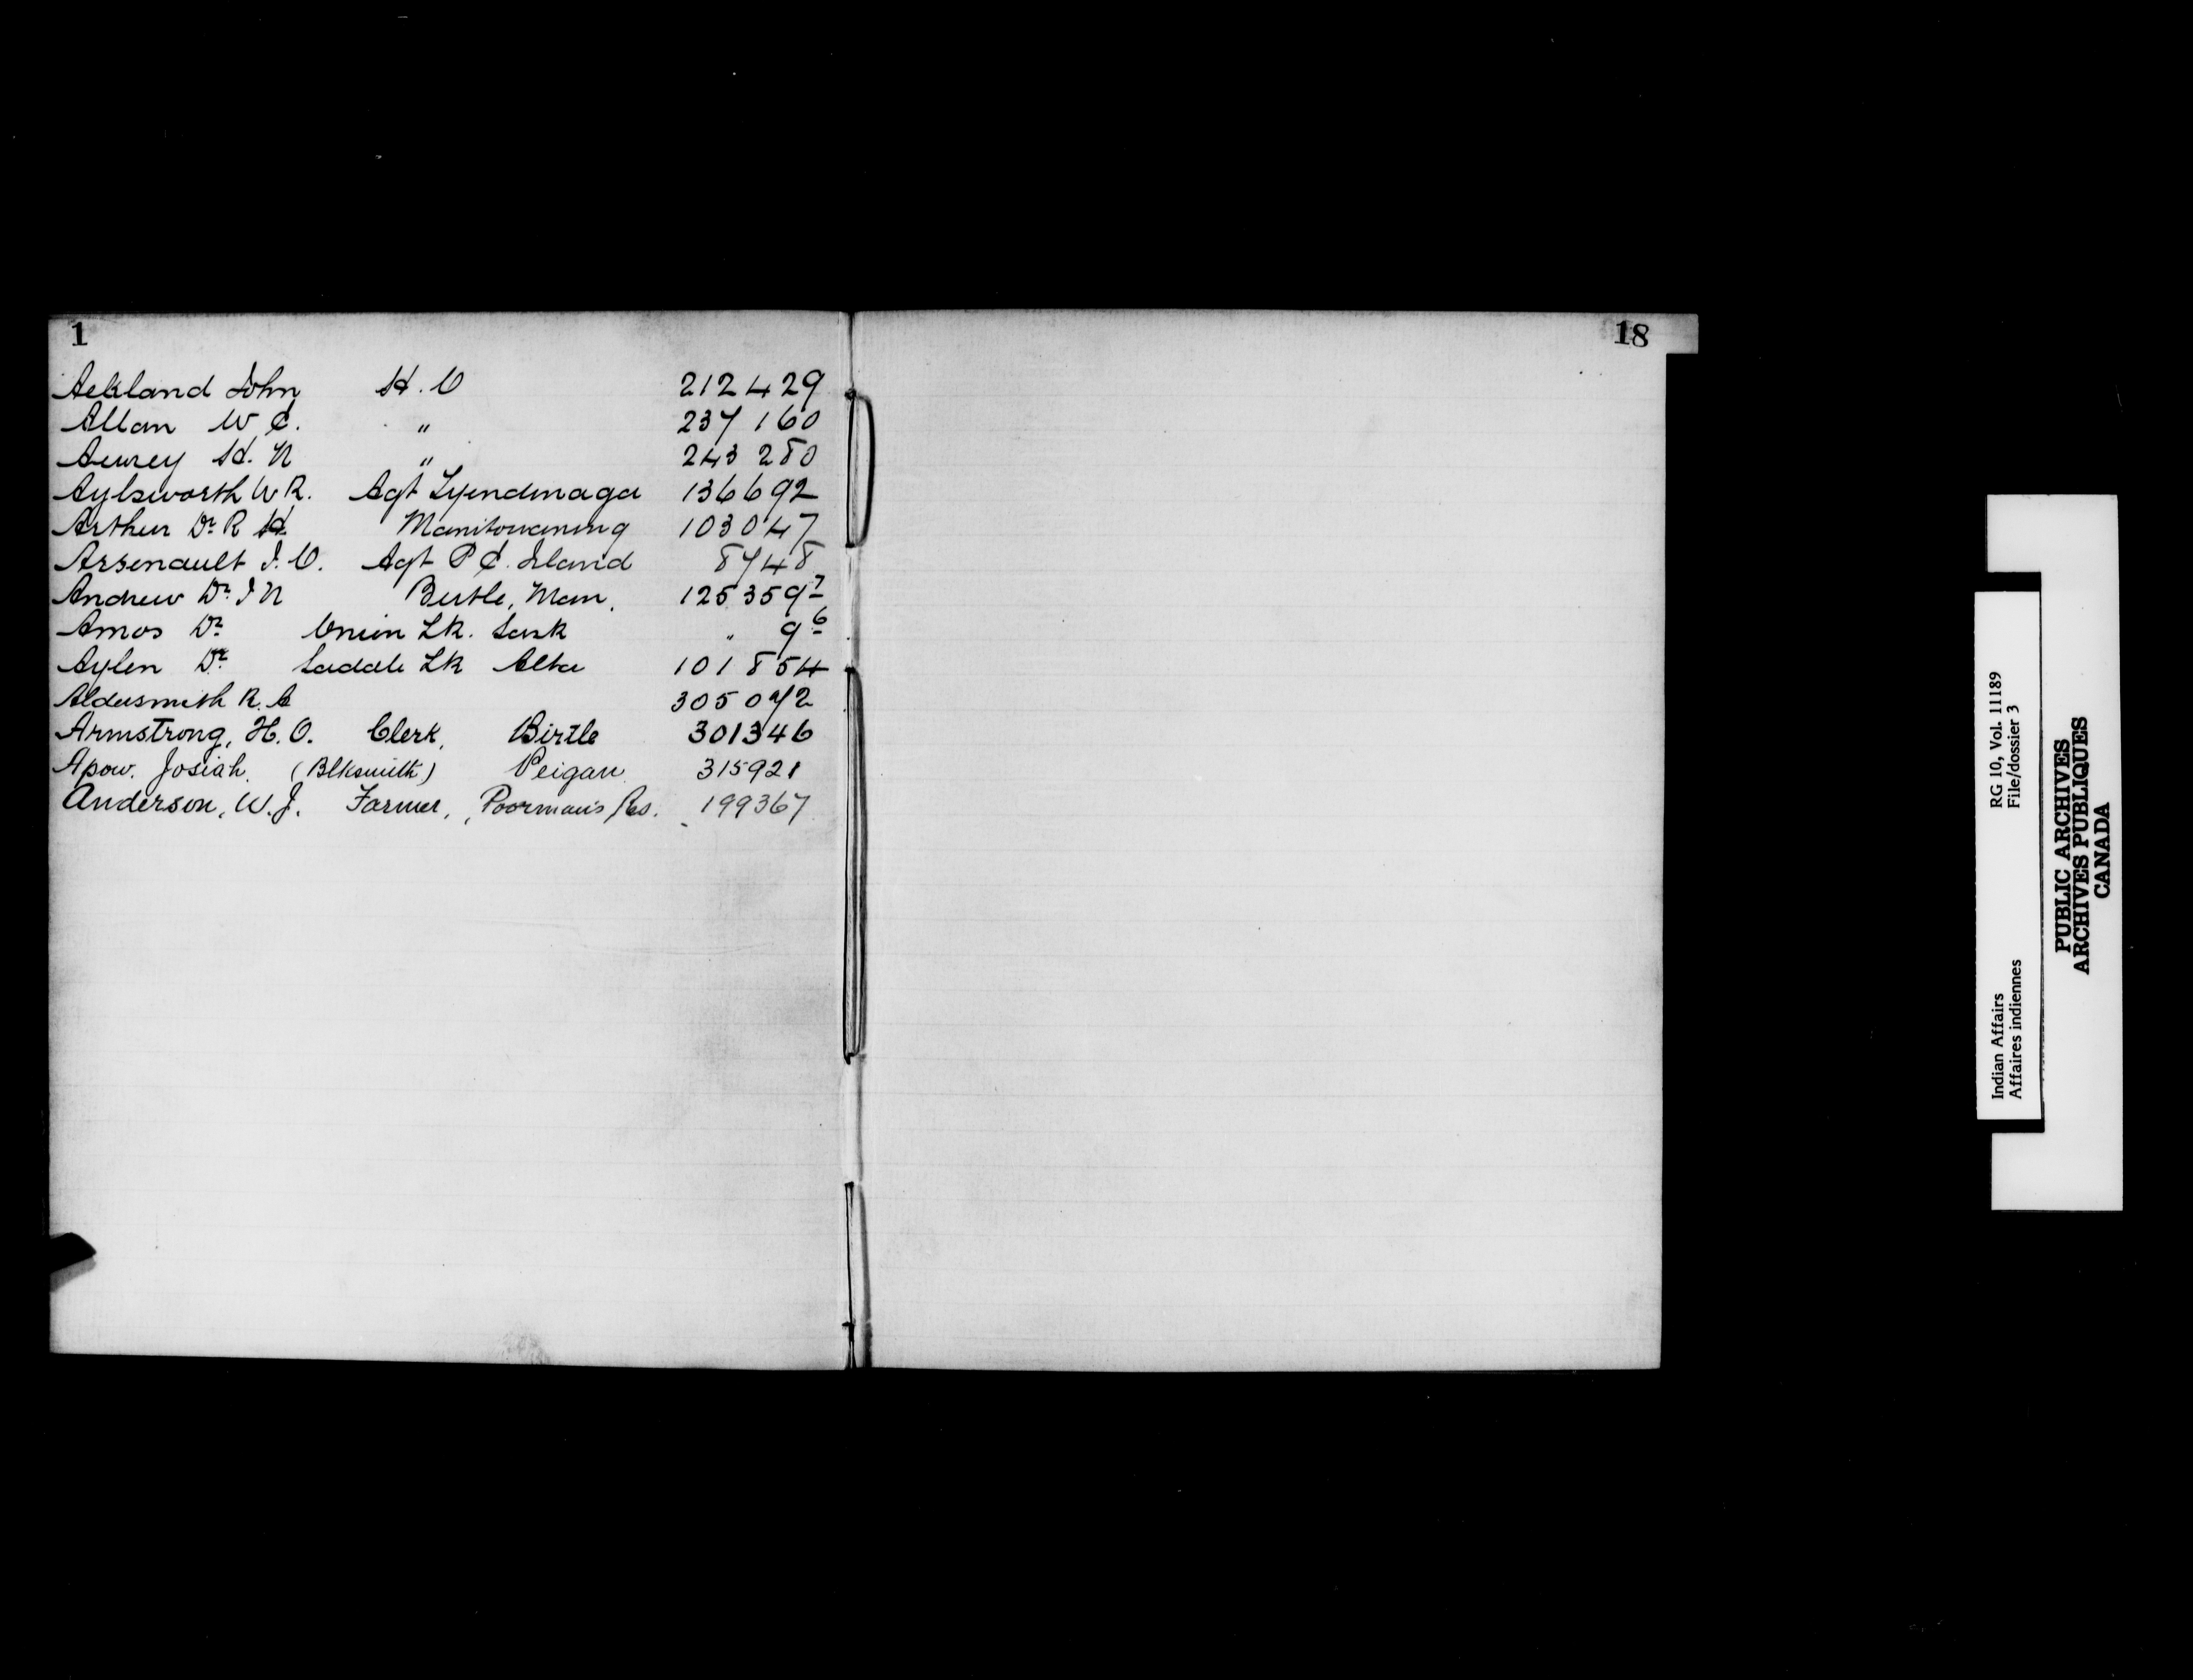 1
Ackland John H.O 212429
Allan W.E. " 237160
Awrey H.N " 243280
Aylsworth W R. Agt Tyendinaga 136692
Arthur Dr R H Manitowaning 103047
Arsenault J.O. Agt P E. Island 8748
Andrew Dr J N Birtle, Man. 125359-7
Amos Dr Onion Lk. Sask " 9-6
Aylen Dr Saddle Lk Alta 101854
Aldersmith R. A 305072
Armstrong, H.O. Clerk, Birtle 301346
Apow. Josiah. (Blksmith) Peigan 315921
Anderson, W.J. Farmer, Poorman's Res. 199367
18
Indian Affairs RG 10, Vol. 11189
Affaires indiennes File/dossier 3
PUBLIC ARCHIVES
ARCHIVES PUBLIQUES
CANADA